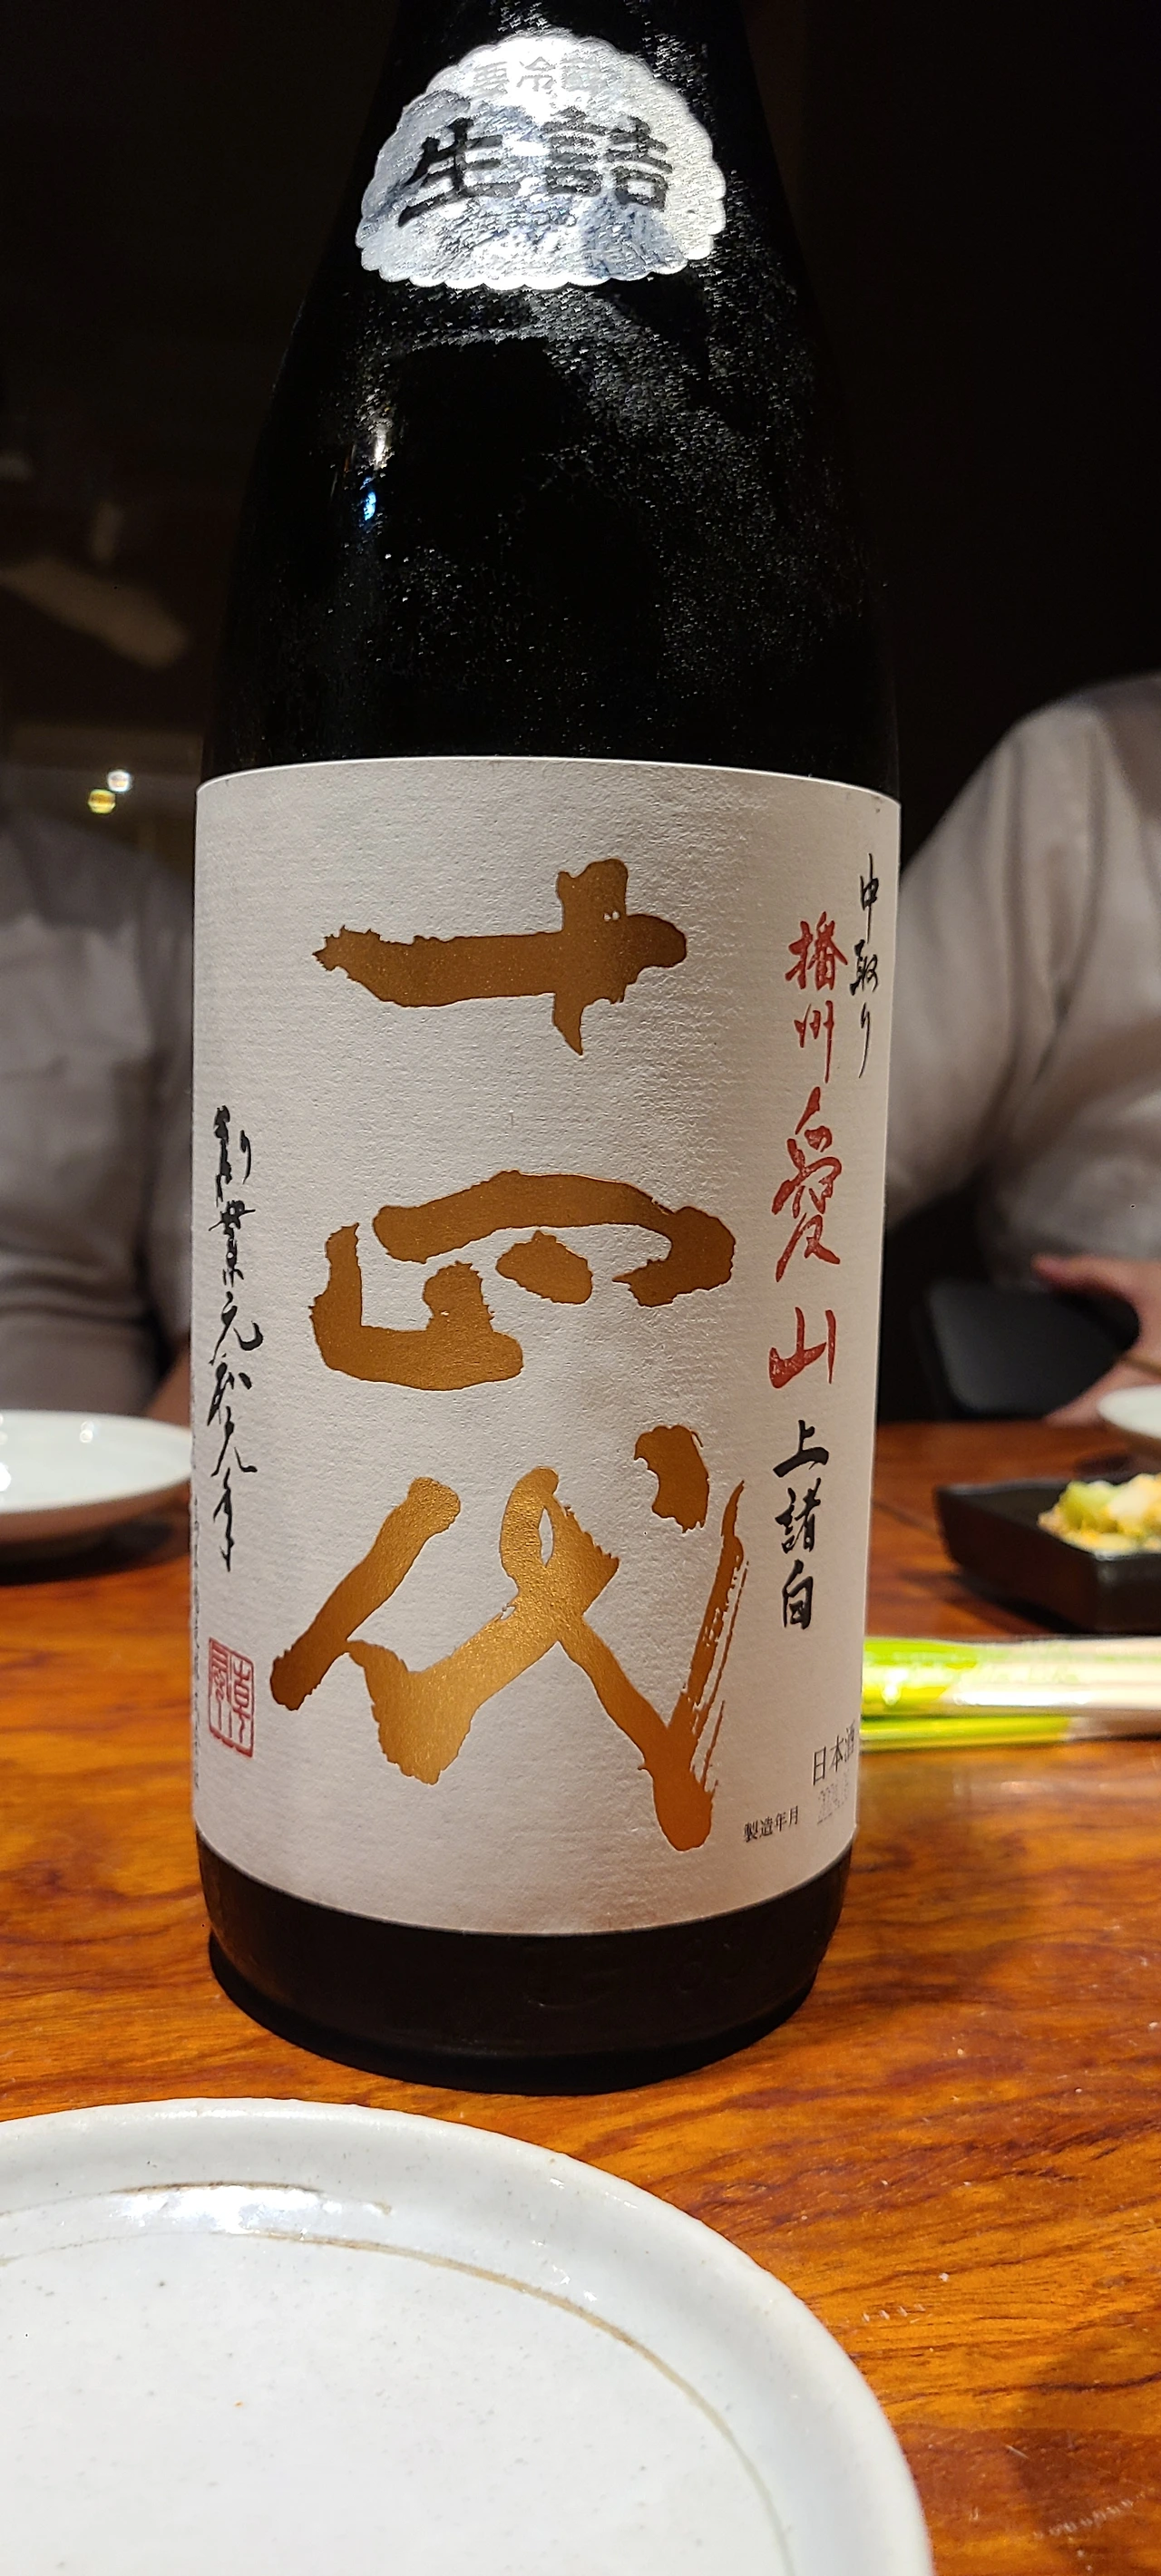 要冷蔵
生詰
中取り
播州愛山上諸白
十四代
創業元和元年
日本酒
製造年月